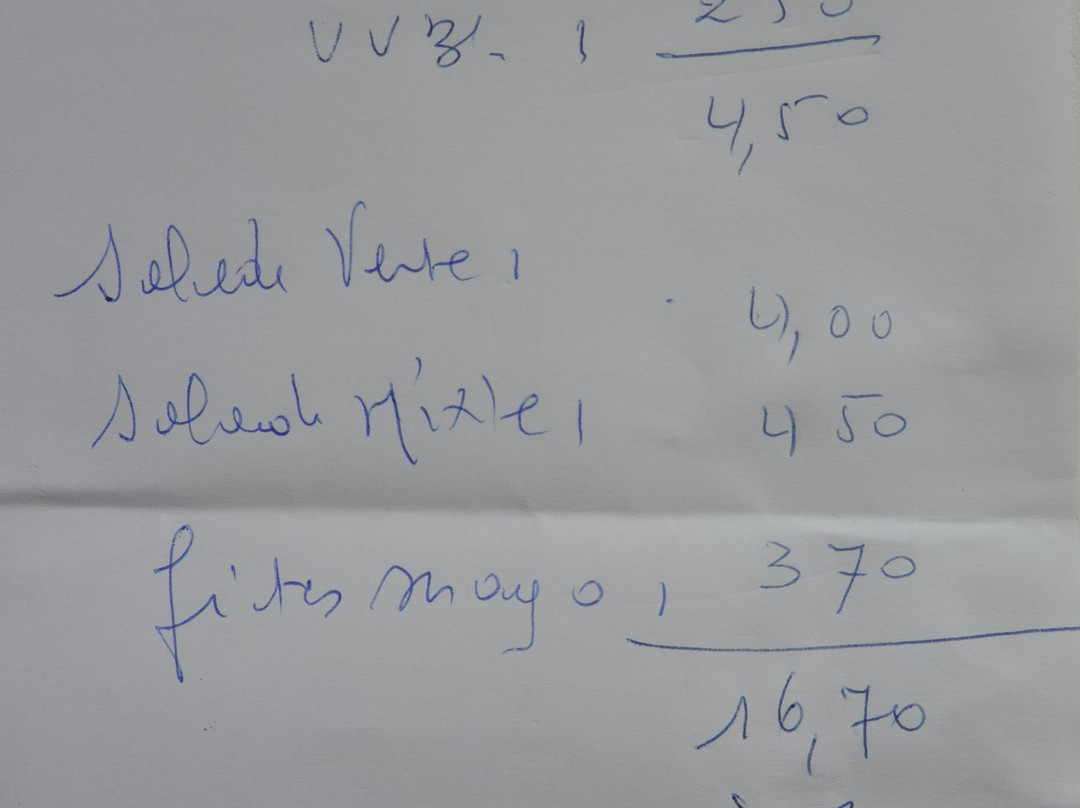 VV3. 1 250
4,50
Salade Verte 1
4,00
Salade Mixte 1 4 50
frites mayo 1 3 70
16,70